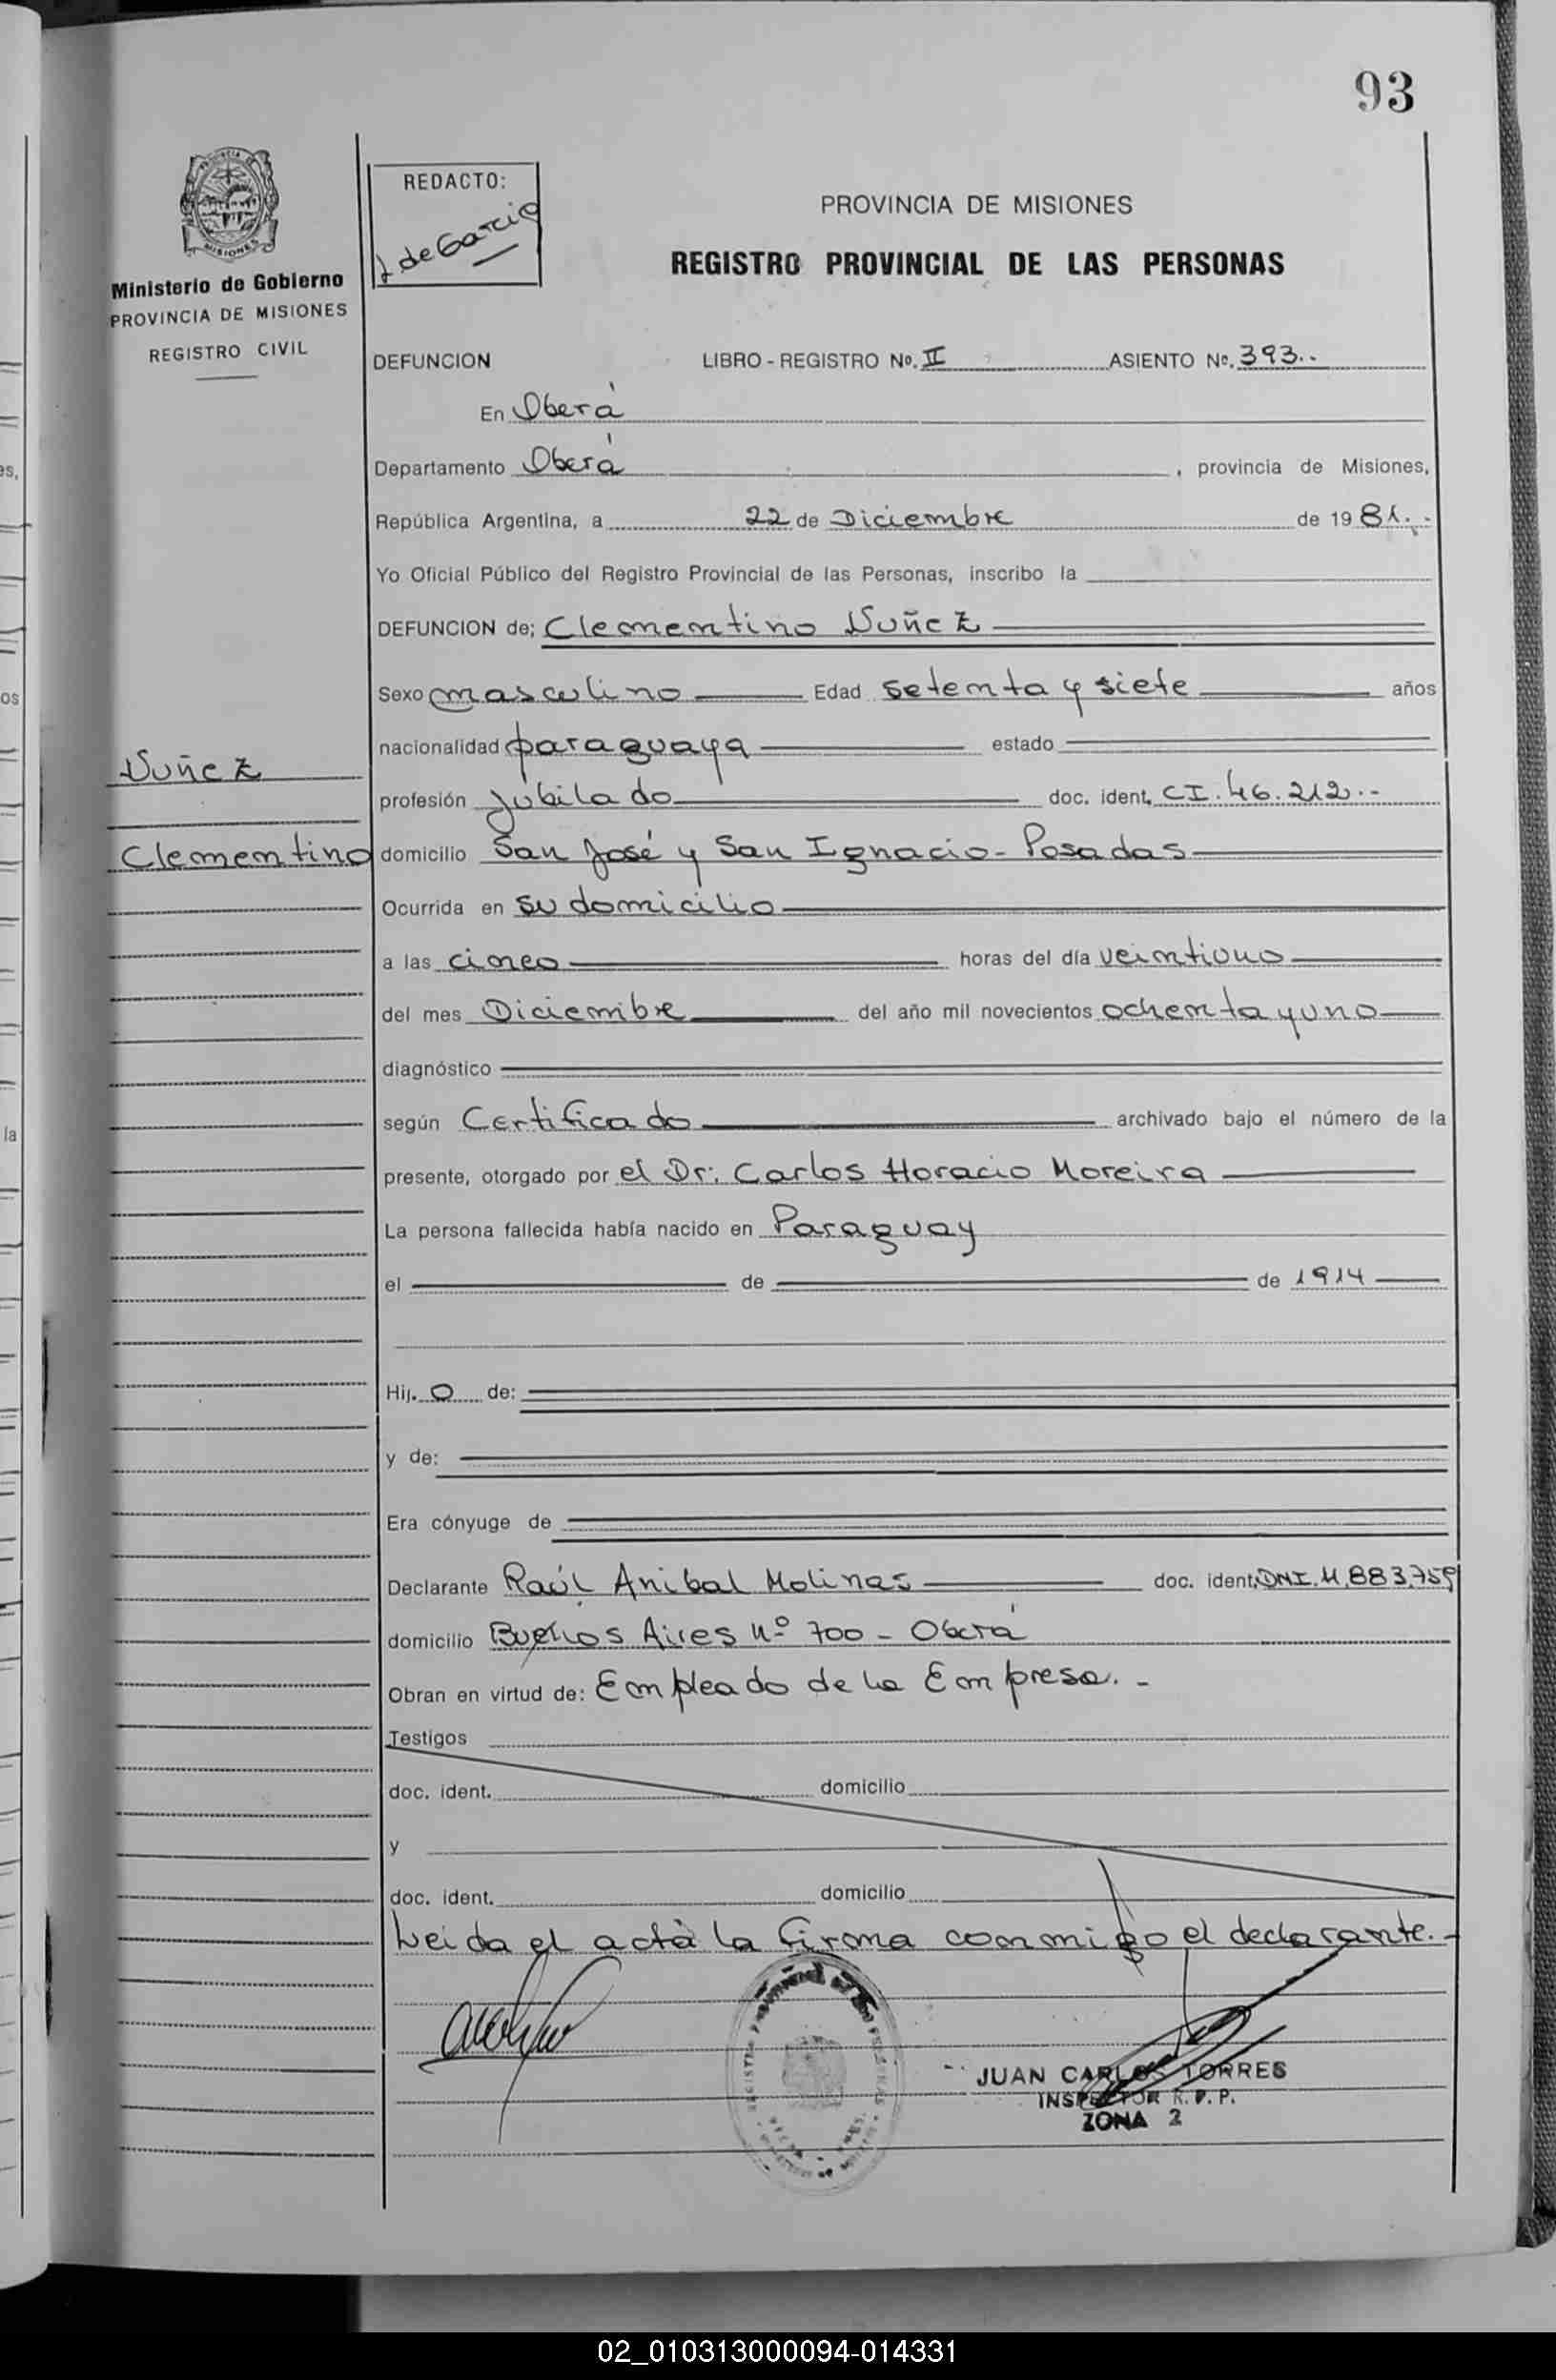 93
REDACTO:
de Garcia
PROVINCIA DE MISIONES
REGISTRO PROVINCIAL DE LAS PERSONAS
MISIONES
Ministerio de Gobierno
PROVINCIA DE MISIONES
REGISTRO CIVIL
DEFUNCION LIBRO - REGISTRO No. II ASIENTO No. 393.-
En Oberá
Departamento Oberá , provincia de Misiones,
República Argentina, a 22 de Diciembre de 1981.-
Yo Oficial Público del Registro Provincial de las Personas, inscribo la
DEFUNCION de; Clementino Nuñez
Sexo masculino Edad setenta y siete años
nacionalidad paraguaya estado
Nuñez
profesión Jubilado doc. ident. CI. 46.212.-
Clementino
domicilio San José y San Ignacio - Posadas
Ocurrida en su domicilio
a las cinco horas del día veintiuno
del mes Diciembre del año mil novecientos ochenta y uno
diagnóstico
según Certificado archivado bajo el número de la
presente, otorgado por el Dr: Carlos Horacio Moreira
La persona fallecida había nacido en Paraguay
el de de 1914
Hij. o de:
y de:
Era cónyuge de
Declarante Raúl Anibal Molinas doc. ident. DNI. M. 883.759
domicilio Buenos Aires Nº 700 - Oberá
Obran en virtud de: Empleado de la Empresa.-
Testigos
doc. ident. domicilio
y
doc. ident. domicilio
Leida el acta la firma conmigo el declarante.-
JUAN CARLOS TORRES
INSPECTOR R. P. P.
ZONA 2
02_010313000094-014331